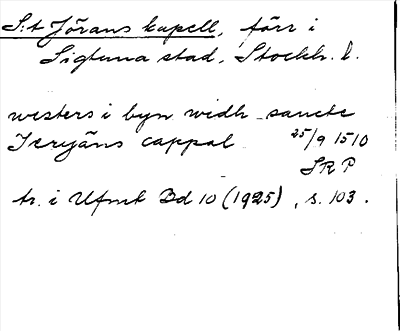 S:t Jörans kapell, förr i
Sigtuna stad, Stockh. l.
westers i byn widh sancte
Jeryäns cappal 25/9 1510
SRP
tr. i Ufmt Bd 10 (1925), s. 103.